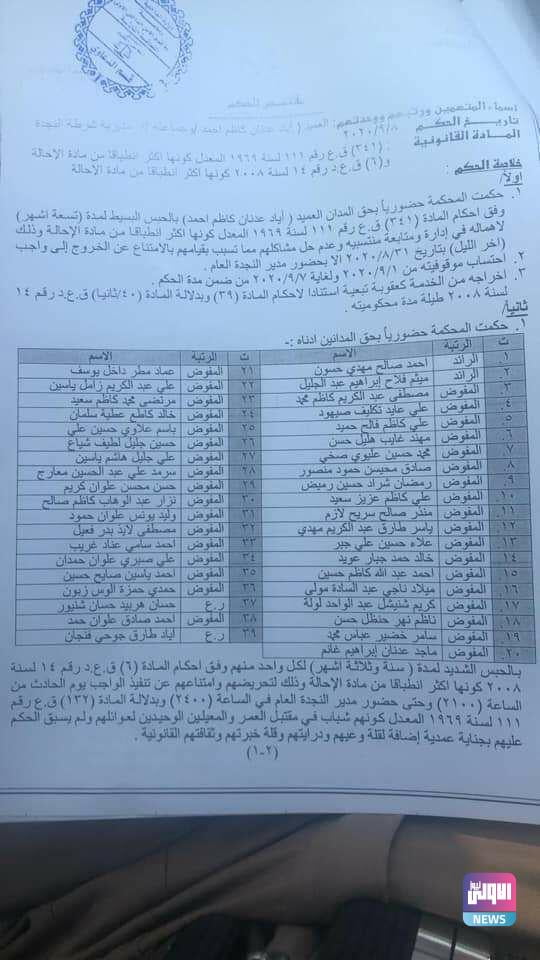 قسم الحكم
اسماء المتهمين ورتبهم ووحدتهم: العميد ( أياد عدنان كاظم احمد )وجماعته مديرية شرطة النجدة
تاريخ الحكم : ٢٠٢٠/٩/٨
المادة القانونية : (٣٤١) ق.ع رقم ١١١ لسنة ١٩٦٩ المعدل كونها أكثر انطباقا من مادة الإحالة
و(٦) ق.ع.د رقم ١٤ لسنة ٢٠٠٨ كونها أكثر انطباقا من مادة الإحالة
خلاصة الحكم :
اولا/
١. حكمت المحكمة حضورياً بحق المدان العميد ( أياد عدنان كاظم احمد) بالحبس البسيط لمدة (تسعة اشهر)
وفق احكام المادة (٣٤١) ق.ع رقم ١١١ لسنة ١٩٦٩ المعدل كونها أكثر انطباقا من مادة الإحالة وذلك
لاهماله في إدارة ومتابعة منتسبيه وعدم حل مشاكلهم مما تسبب بقيامهم بالامتناع عن الخروج إلى واجب
(اخر الليل) بتاريخ ٢٠٢٠/٨/٣١ الا بحضور مدير النجدة العام .
٢. احتساب موقوفيته من ٢٠٢٠/٩/١ ولغاية ٢٠٢٠/٩/٧ من ضمن مدة الحكم .
٣. اخراجه من الخدمة كعقوبة تبعية استنادا لاحكام المادة (٣٩) وبدلالة المادة (٤٠/ثانيا) ق.ع.د رقم ١٤
لسنة ٢٠٠٨ طيلة مدة محكوميته .
ثانيا/
١. حكمت المحكمة حضورياً بحق المدانين ادناه :-
ت الرتبة الاسم ت الرتبة الاسم
١. الرائد احمد صالح مهدي حسون ٢١ المفوض عماد مطر داخل يوسف
٢. الرائد ميثم فلاح إبراهيم عبد الجليل ٢٢ المفوض علي عبد الكريم زامل ياسين
٣. المفوض مصطفى عبد الكريم كاظم محمد ٢٣ المفوض مرتضى محمد كاظم سعيد
٤. المفوض علي عايد تكليف صيهود ٢٤ المفوض خالد كاطع عطية سلمان
٥. المفوض علي كاظم فالح حميد ٢٥ المفوض باسم علاوي حسين علي
٦. المفوض مهند غايب هليل حسن ٢٦ المفوض حسين جليل لطيف شياع
٧. المفوض محمد حسين عليوي صخي ٢٧ المفوض علي جليل هاشم ياسين
٨. المفوض صادق محيسن حمود منصور ٢٨ المفوض سرمد علي عبد الحسين معارج
٩. المفوض رمضان شراد حسين رميض ٢٩ المفوض حسن محسن علوان كريم
١٠. المفوض علي كاظم عزيز سعيد ٣٠ المفوض نزار عبد الوهاب كاظم صالح
١١. المفوض منذر صالح سريح لازم ٣١ المفوض وليد يونس علوان حمود
١٢. المفوض ياسر طارق عبد الكريم مهدي ٣٢ المفوض مصطفى لايذ بدر فعيل
١٣. المفوض علاء حسين علي جبر ٣٣ المفوض احمد سامي عناد غريب
١٤. المفوض خالد حمد جبار عويد ٣٤ المفوض علي صبري علوان حمدان
١٥. المفوض احمد عبد الله كاظم حسين ٣٥ المفوض احمد ياسين صايح حسين
١٦. المفوض ميلاد ناجي عبد السادة مولى ٣٦ المفوض حمدي حمزة الوس زبون
١٧. المفوض كريم شنيشل عبد الواحد لولة ٣٧ ر.ع حسان هربيد حسان شنيور
١٨. المفوض ناظم نهر حنظل حسن ٣٨ المفوض احمد صادق علوان حمد
١٩. المفوض سامر خضير عباس محمد ٣٩ ر.ع اياد طارق جوحي فنجان
٢٠. المفوض ماجد عدنان إبراهيم غانم
بالحبس الشديد لمدة ( سنة وثلاثة اشهر) لكل واحد منهم وفق احكام المادة (٦) ق.ع.د رقم ١٤ لسنة
٢٠٠٨ كونها أكثر انطباقا من مادة الإحالة وذلك لتحريضهم وامتناعهم عن تنفيذ الواجب يوم الحادث من
الساعة (٢١٠٠) وحتى حضور مدير النجدة العام في الساعة (٢٤٠٠) وبدلالة المادة (١٣٢) ق.ع رقم
١١١ لسنة ١٩٦٩ المعدل كونهم شباب في مقتبل العمر والمعيلين الوحيدين لعوائلهم ولم يسبق الحكم
عليهم بجناية عمدية إضافة لقلة وعيهم ودرايتهم وقلة خبرتهم وثقافتهم القانونية .
(٢-١)
الاولى نيوز
NEWS